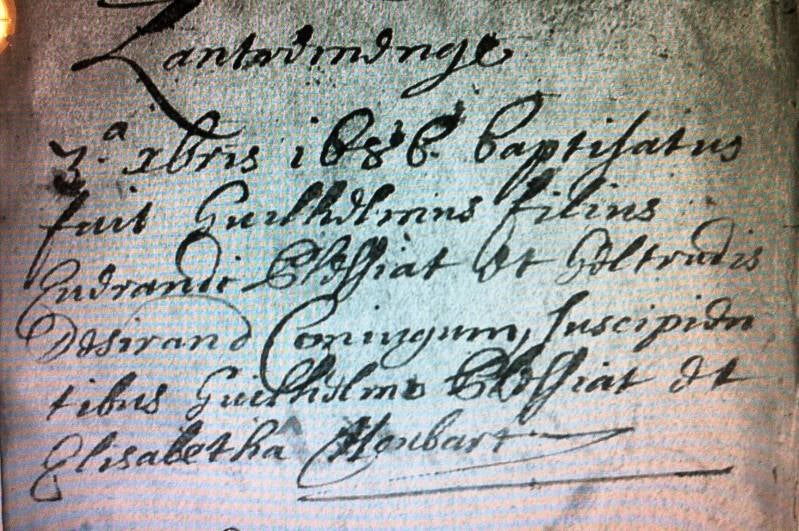 Lantremenge
3.a xbris 1686 baptisatus
fuit Guilhelmus filius
Everardi Blessiat et Geltrudis
Desirand Coniugum, suscipien
tibus Guilhelmo Blessiat et
Elisabetha Moubart